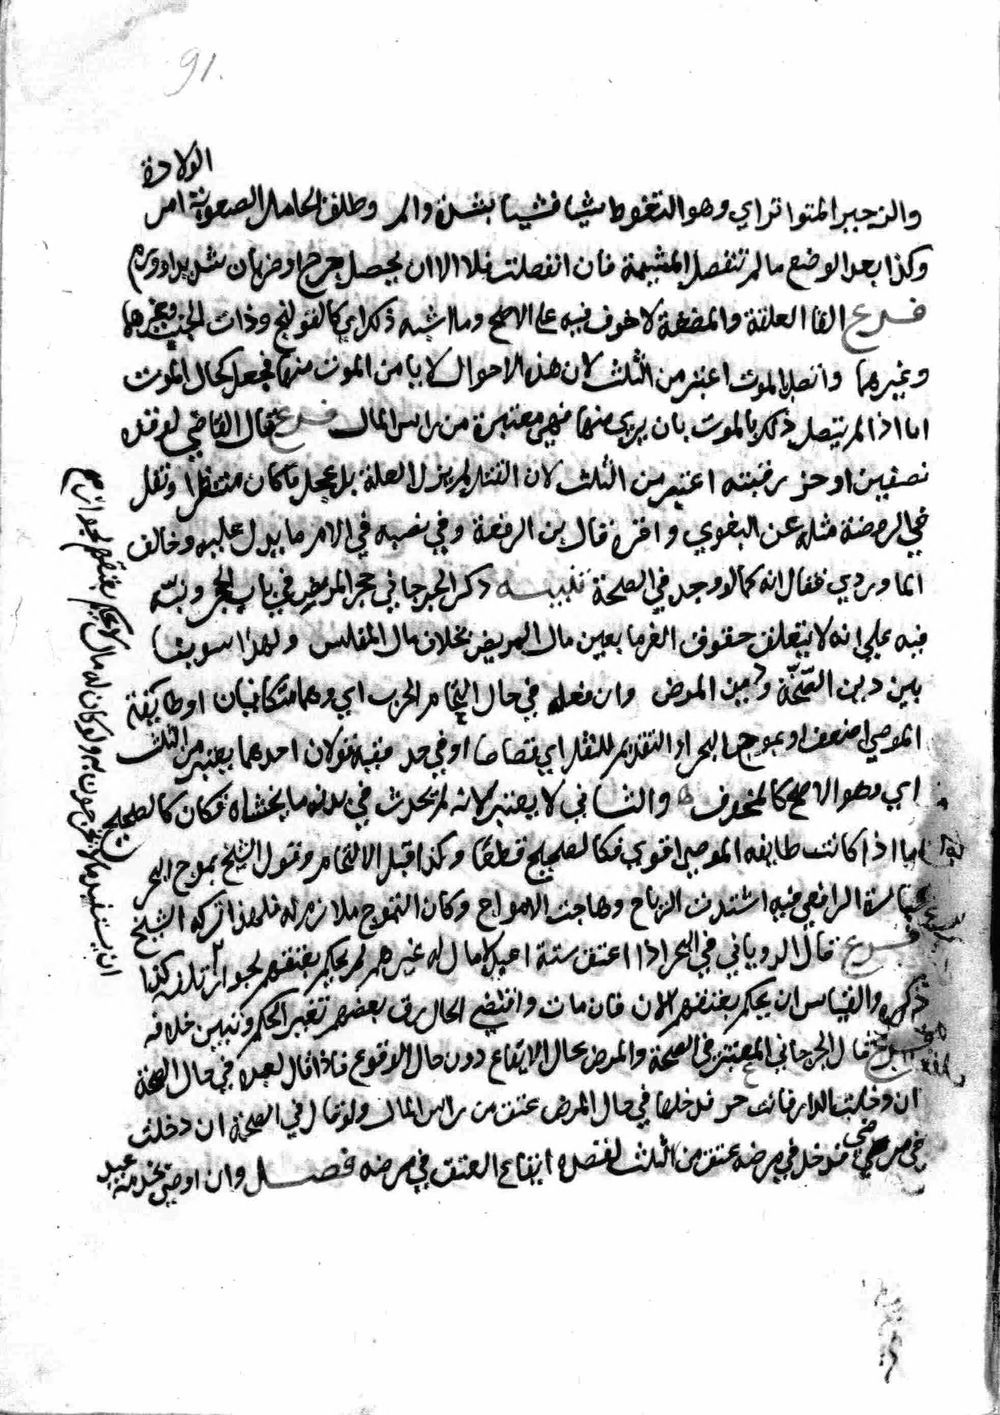 91.
الولادة
والزحير المتواتر اي وهو التغوط شيا فشيا بشدة والم وطلق الحامل لصعوبة امر
وكذا بعد الوضع مالم تنفصل المشيمة فان انفصلت فلا الا ان يحصل بجرح او ضربان شديد او ورم
فرع القا العلقة والمضغة لا خوف فيه على الاصح وما اشبه ذلك اي كالقولنج وذات الجنب وغيرهما
وغيرهما واتصل بالموت اعتبر من الثلث لان هذه الاحوال لا يامن الموت منها فجعل كحال الموت
اما اذا لم يتصل ذلك بالموت بان بري منها فهي معتبرة من راس المال فرع قال القاضي لو قده
نصفين او حز رقبته اعتبر من الثلث لان القتل لم يزل العلة بل عجل ما كان منتظرا ونقل
في الروضة مثله عن البغوي واقره قال بن الرفعة وفي نصه في الام ما يدل عليه وخالف
الماوردي فقال انه كما لو وجد في الصحة تنبيه ذكر الجرجاني حجر المريض في باب الحجر ونبه
فيه على انه لا يتعلق حقوق الغرما بعين مال المريض بخلاف مال المفلس ولهذا سوينا
بين دين الصحة وبين المرض وان فعله في حال التحام الحرب اي وهما متكافيان او طايفة
الموصي اضعف او بموج البحر او التقديم للقتل اي قصاصا او في حد ففيه قولان احدهما يعتبر من الثلث
اي وهو الاصح كالمخوف والثاني لا يعتبر لانه لم يحدث في بدنه ما يخشاه فكان كالصحيح
اما اذا كانت طايفة الموصي اقوى فكالصحيح قطعا وكذا قبل الالتحام وقول الشيخ بموج البحر
عبارة الرافعي فيه اشتدت الرياح وهاجت الامواج وكان التموج ملازم له فلهذا تركه الشيخ
فرع قال الروياني في البحر اذا اعتق ستة اعبد لا مال له غيرهم لم يحكم بعتقهم لجواز تلا كذا
ذكره والقياس ان يحكم بعتقهم الان فان مات واقتضى الحال رق بعضهم تغير الحكم وتبين خلافه
فرع قال الجرجاني المعتبر في الصحة والمرض بحال الايقاع دون حال الوقوع فاذا قال لعبده في حال الصحة
ان دخلت الدار فانت حر فدخلها في حال المرض عتق من راس المال ولو قال في الصحة ان دخلت
في مرضي فدخل في مرضه عتق من الثلث لقصده ايقاع العتق في مرضه فصل وان اوصى بخدمة عبد